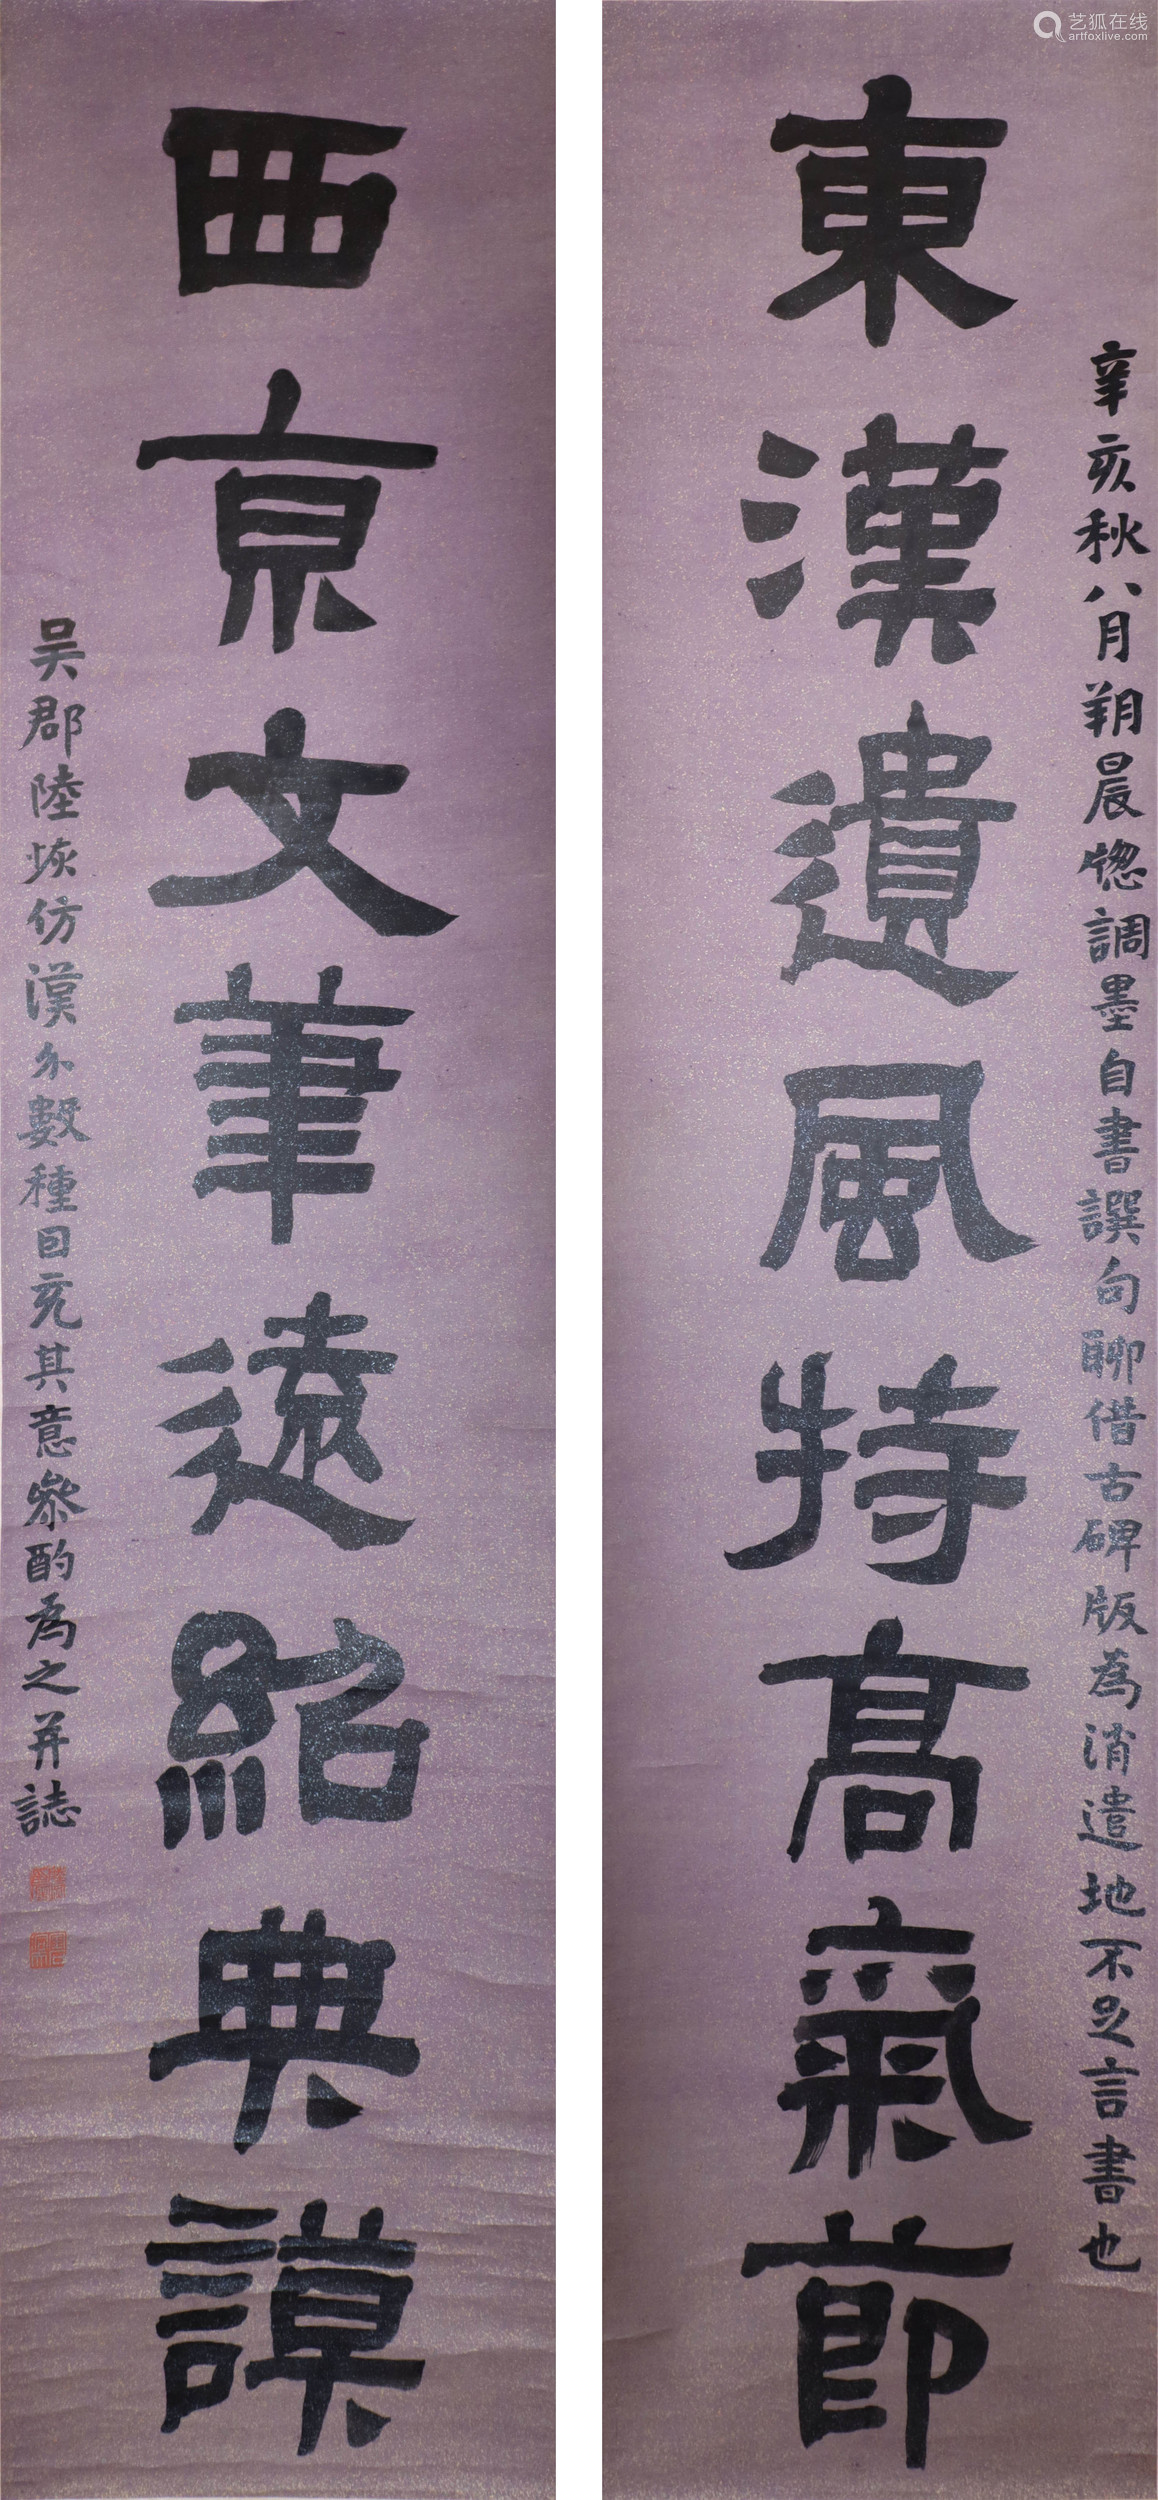 東漢遺風持高氣節
西京文筆遠紹典謨
辛亥秋八月朔晨愡調墨自書譔句聊借古碑版為消遣地不足言書也
吴郡陸恢仿漢分數種回克其意參酌為之并誌
艺狐在线
artfoxlive.com